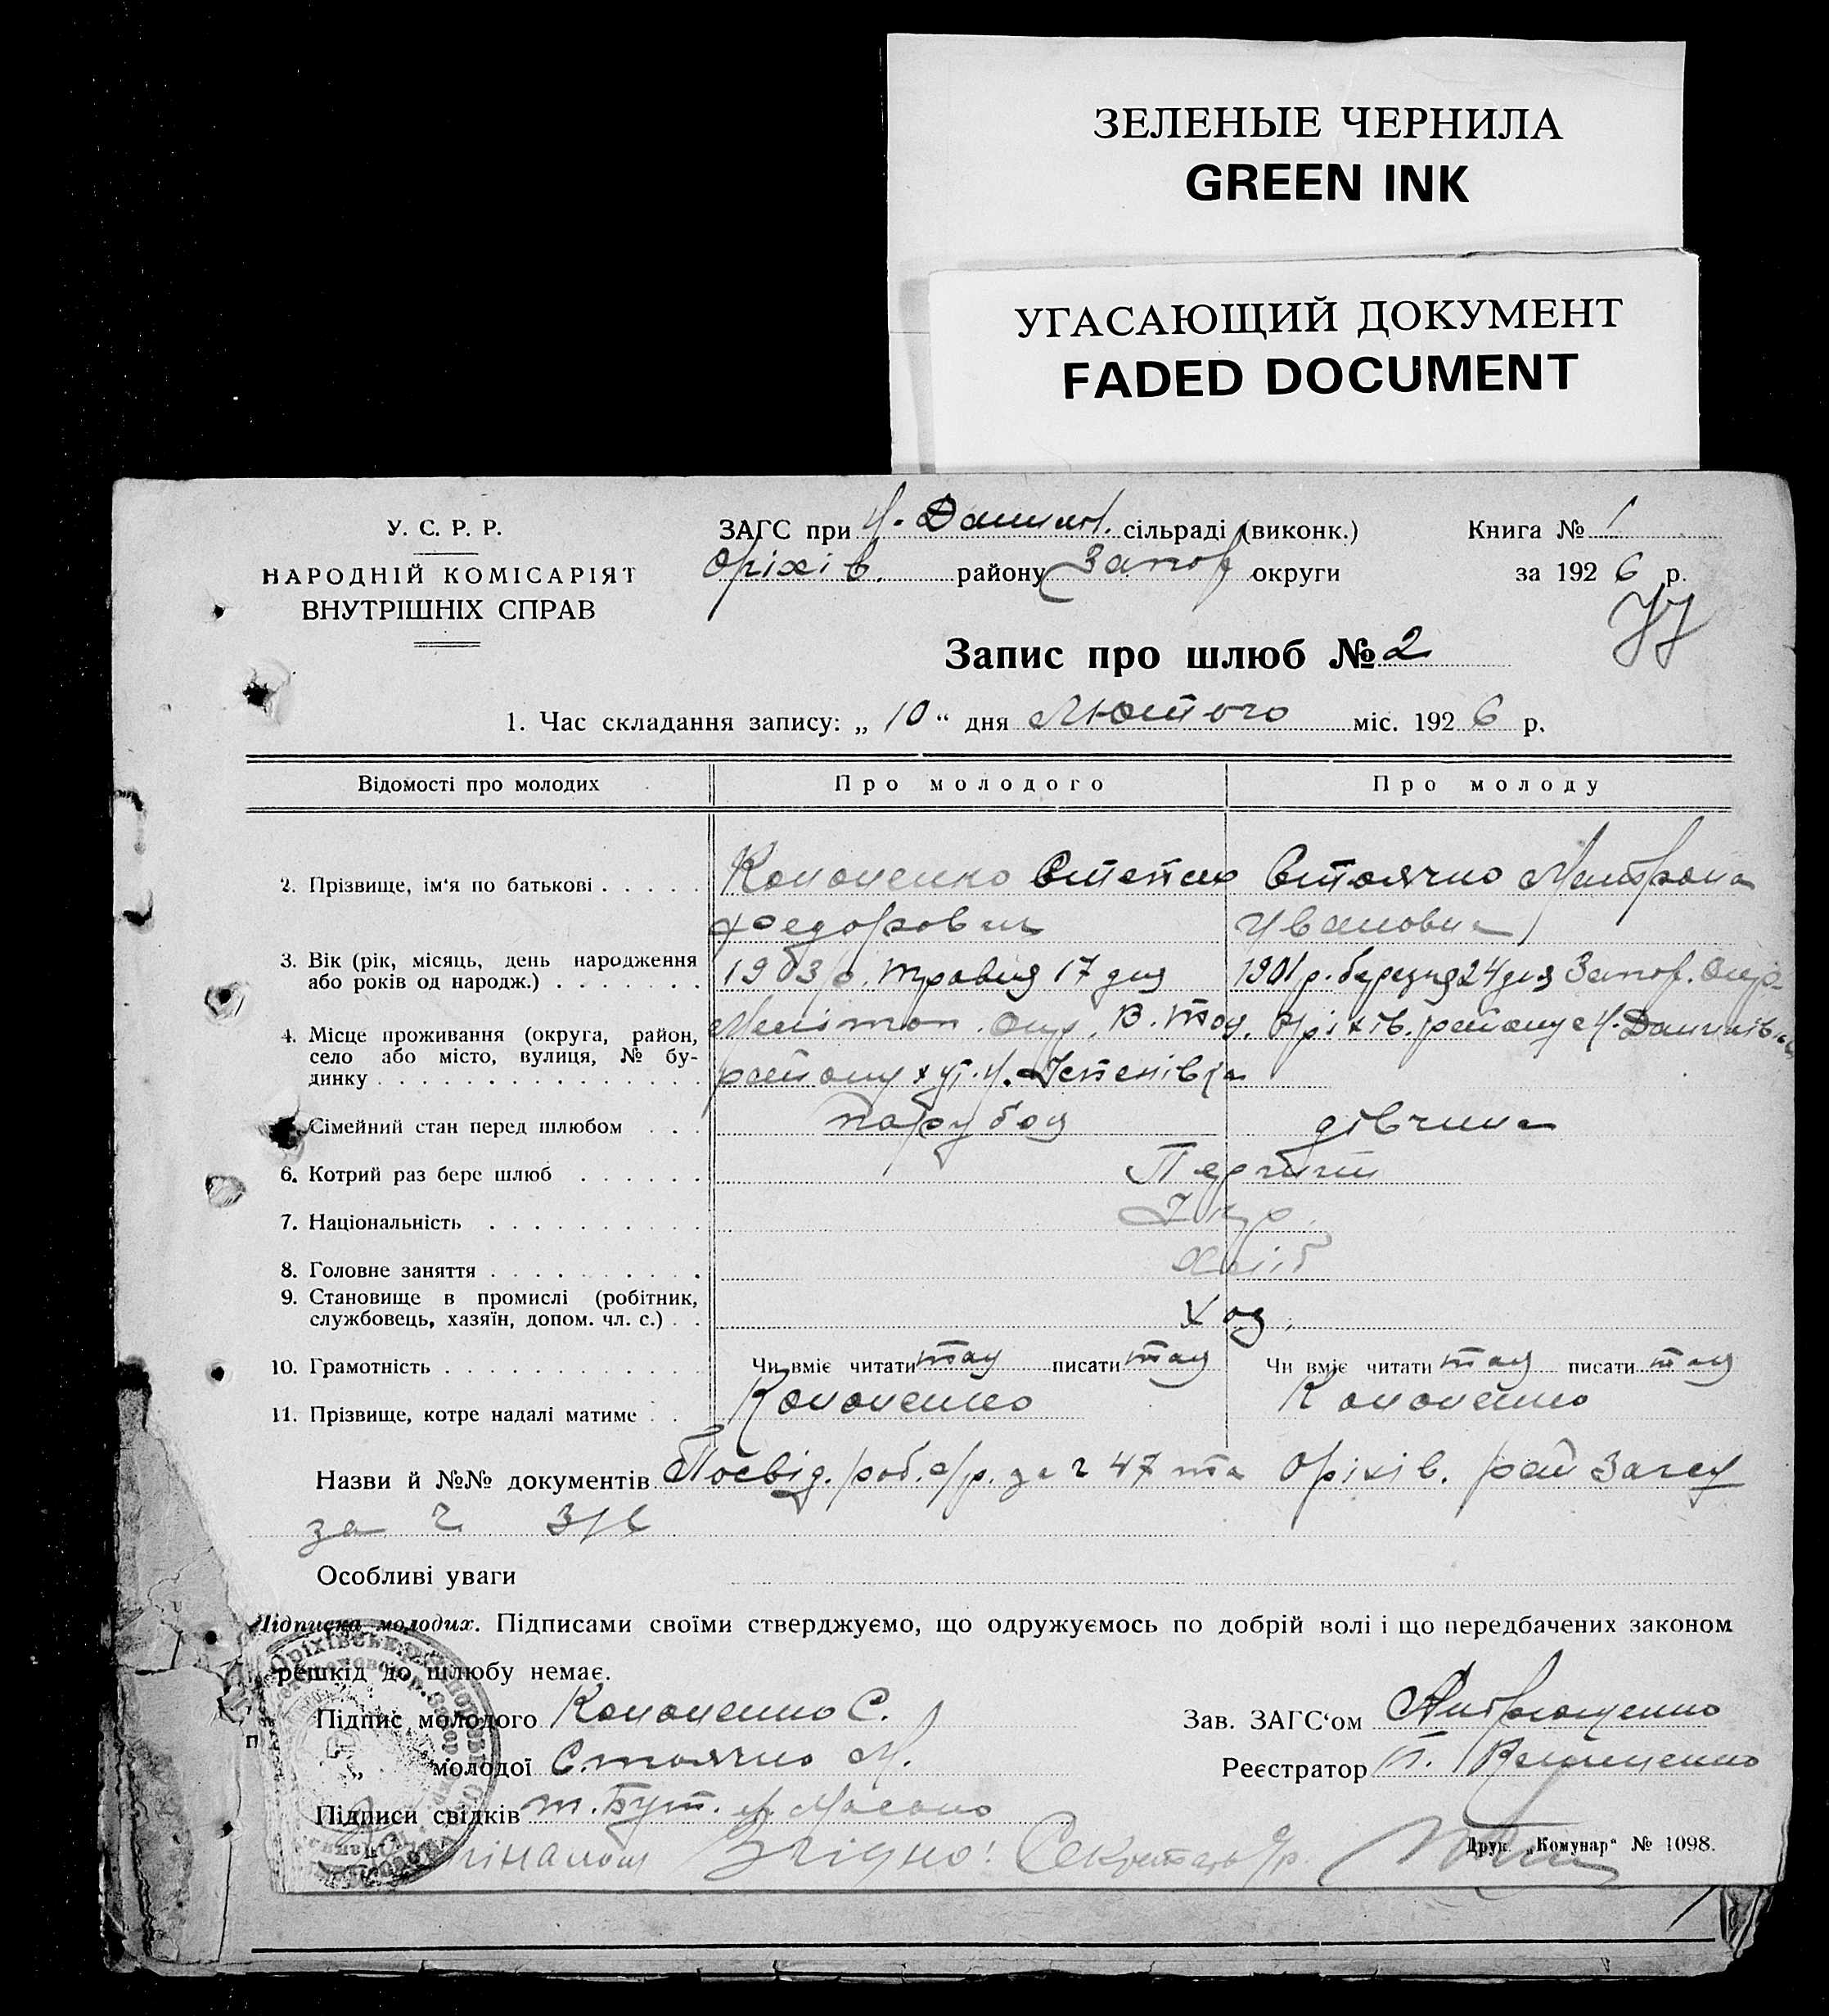 ЗЕЛЕНЫЕ ЧЕРНИЛА
GREEN INK
УГАСАЮЩИЙ ДОКУМЕНТ
FADED DOCUMENT
У. С. Р. Р.
НАРОДНІЙ КОМІСАРІЯТ
ВНУТРІШНІХ СПРАВ
ЗАГС при Н. Данилів. сільраді (виконк.)
Оріхів. району Запор округи
Книга № 1
за 1926 р.
Запис про шлюб № 2
1. Час складання запису: „10“ дня Лютого міс. 1926 р.
Відомості про молодих Про молодого Про молоду
2. Прізвище, ім‘я по батькові Кононенко Степан Стоячко Мотрона
Федорович Ивановна
3. Вік (рік, місяць, день народження 1903 р. травня 17 дня 1901 р. березня 24 дня Запор. Окр.
або років од народж.)
4. Місце проживання (округа, район, Мелітоп. Окр. В. Ток. Оріхів. району Н. Данилівка
село або місто, вулиця, № бу- району хут. Н.
динку
Сімейний стан перед шлюбом парубок дівчина
6. Котрий раз бере шлюб Первий
7. Національність Укр.
8. Головне заняття Хліб
9. Становище в промислі (робітник, Хоз.
службовець, хазяїн, допом. чл. с.)
10. Грамотність Чи вміє читати так писати так Чи вміє читати так писати так
11. Прізвище, котре надалі матиме Кононенко Кононенко
Назви й №№ документів Посвід. с/р. за ч 47 та Оріхів. рай Загсу
за ч
Особливі уваги
Підписка молодих. Підписами своїми стверджуємо, що одружуємось по добрій волі і що передбачених законом
решкід до шлюбу немає.
Підпис молодого Кононенко С.
Зав. ЗАГС‘ом Андрющенко
„ молодої Стоячко М.
Реєстратор
Підписи свідків
Друк. „Комунар“ № 1098.
Згідно: Секретарь с/р.